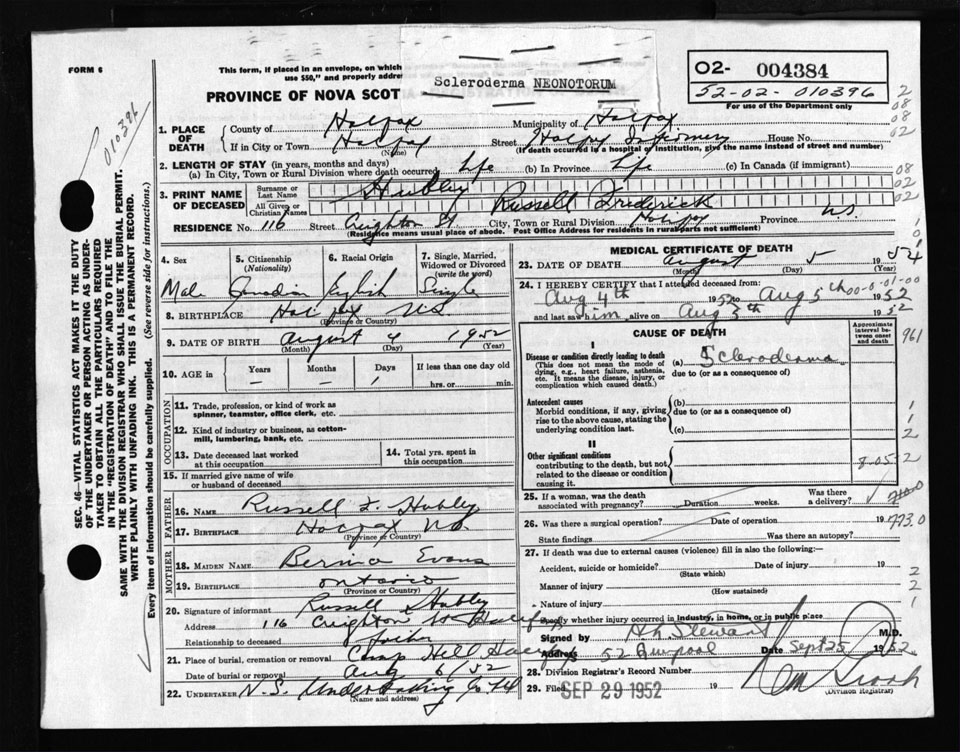 FORM 6
This form, if placed in an envelope, on which
use $50," and properly addre
PROVINCE OF NOVA SCOT
Scleroderma NEONOTORUM
O2- 004384
52-02-010396
For use of the Department only
010396
2
08
08
02
1. PLACE OF DEATH
County of Halifax Municipality of Halifax
If in City or Town Halifax Street Halifax Infirmary House No.
(Name) (If death occurred in a hospital or institution, give the name instead of street and number)
2. LENGTH OF STAY (in years, months and days)
(a) In City, Town or Rural Division where death occurred life (b) In Province life (c) In Canada (if immigrant)
08
02
02
3. PRINT NAME OF DECEASED
Surname or Last Name Hubley
All Given or Christian Names Russell Frederick
RESIDENCE No. 116 Street Creighton St. City, Town or Rural Division Halifax Province N.S.
(Residence means usual place of abode. Post Office Address for residents in rural parts not sufficient)
4. Sex
Male
5. Citizenship (Nationality)
Canadian
6. Racial Origin
English
7. Single, Married, Widowed or Divorced (write the word)
Single
8. BIRTHPLACE Halifax N.S.
(Province or Country)
9. DATE OF BIRTH August 4 1952
(Month) (Day) (Year)
10. AGE in Years Months Days If less than one day
— — 1 hrs. or min.
OCCUPATION
11. Trade, profession, or kind of work as spinner, teamster, office clerk, etc.
12. Kind of industry or business, as cotton-mill, lumbering, bank, etc.
13. Date deceased last worked at this occupation
14. Total yrs. spent in this occupation
15. If married give name of wife or husband of deceased
FATHER
16. Name Russell F. Hubley
17. BIRTHPLACE Halifax N.S.
(Province or Country)
MOTHER
18. MAIDEN NAME Evans
19. BIRTHPLACE Ontario
(Province or Country)
20. Signature of informant Russell Hubley
Address 116 Creighton St. Halifax
Relationship to deceased father
21. Place of burial, cremation or removal Camp Hill
Date of burial or removal Aug 6/52
22. UNDERTAKER N.S. Undertaking Co Ltd
(Name and address)
MEDICAL CERTIFICATE OF DEATH
23. DATE OF DEATH August 5 19
(Month) (Day) (Year)
24. I HEREBY CERTIFY that I attended deceased from
Aug 4th 1952 to Aug 5th 1952
00-0-01-00
and last saw him alive on Aug 5th 1952
CAUSE OF DEATH
Approximate interval between onset and death
961
I
Disease or condition directly leading to death
(This does not mean the mode of dying, e.g., heart failure, asthenia, etc. It means the disease, injury, or complication which caused death.)
(a) Scleroderma
due to (or as a consequence of)
Antecedent causes
Morbid conditions, if any, giving rise to the above cause, stating the underlying condition last.
(b)
due to (or as a consequence of)
(c)
1
1
2
II
Other significant conditions
contributing to the death, but not related to the disease or condition causing it.
8-05-2
25. If a woman, was the death associated with pregnancy? Duration weeks. Was there a delivery?
26. Was there a surgical operation? Date of operation 19
773.0
State findings Was there an autopsy?
27. If death was due to external causes (violence) fill in also the following:—
Accident, suicide or homicide? Date of injury 19
(State which)
Manner of injury
(How sustained)
Nature of injury
2
2
1
Specify whether injury occurred in industry, in home, or in public place
Signed by Stewart M.D.
Address 52 Date Sept 25 1952
28. Division Registrar's Record Number
29. Filed SEP 29 1952 19
(Division Registrar)
SEC. 46—VITAL STATISTICS ACT MAKES IT THE DUTY
OF THE UNDERTAKER OR PERSON ACTING AS UNDER-
TAKER TO OBTAIN ALL THE PARTICULARS REQUIRED
IN THE "REGISTRATION OF DEATH" AND TO FILE THE
SAME WITH THE DIVISION REGISTRAR WHO SHALL ISSUE THE BURIAL PERMIT.
WRITE PLAINLY WITH UNFADING INK. THIS IS A PERMANENT RECORD.
Every item of information should be carefully supplied. (See reverse side for instructions.)